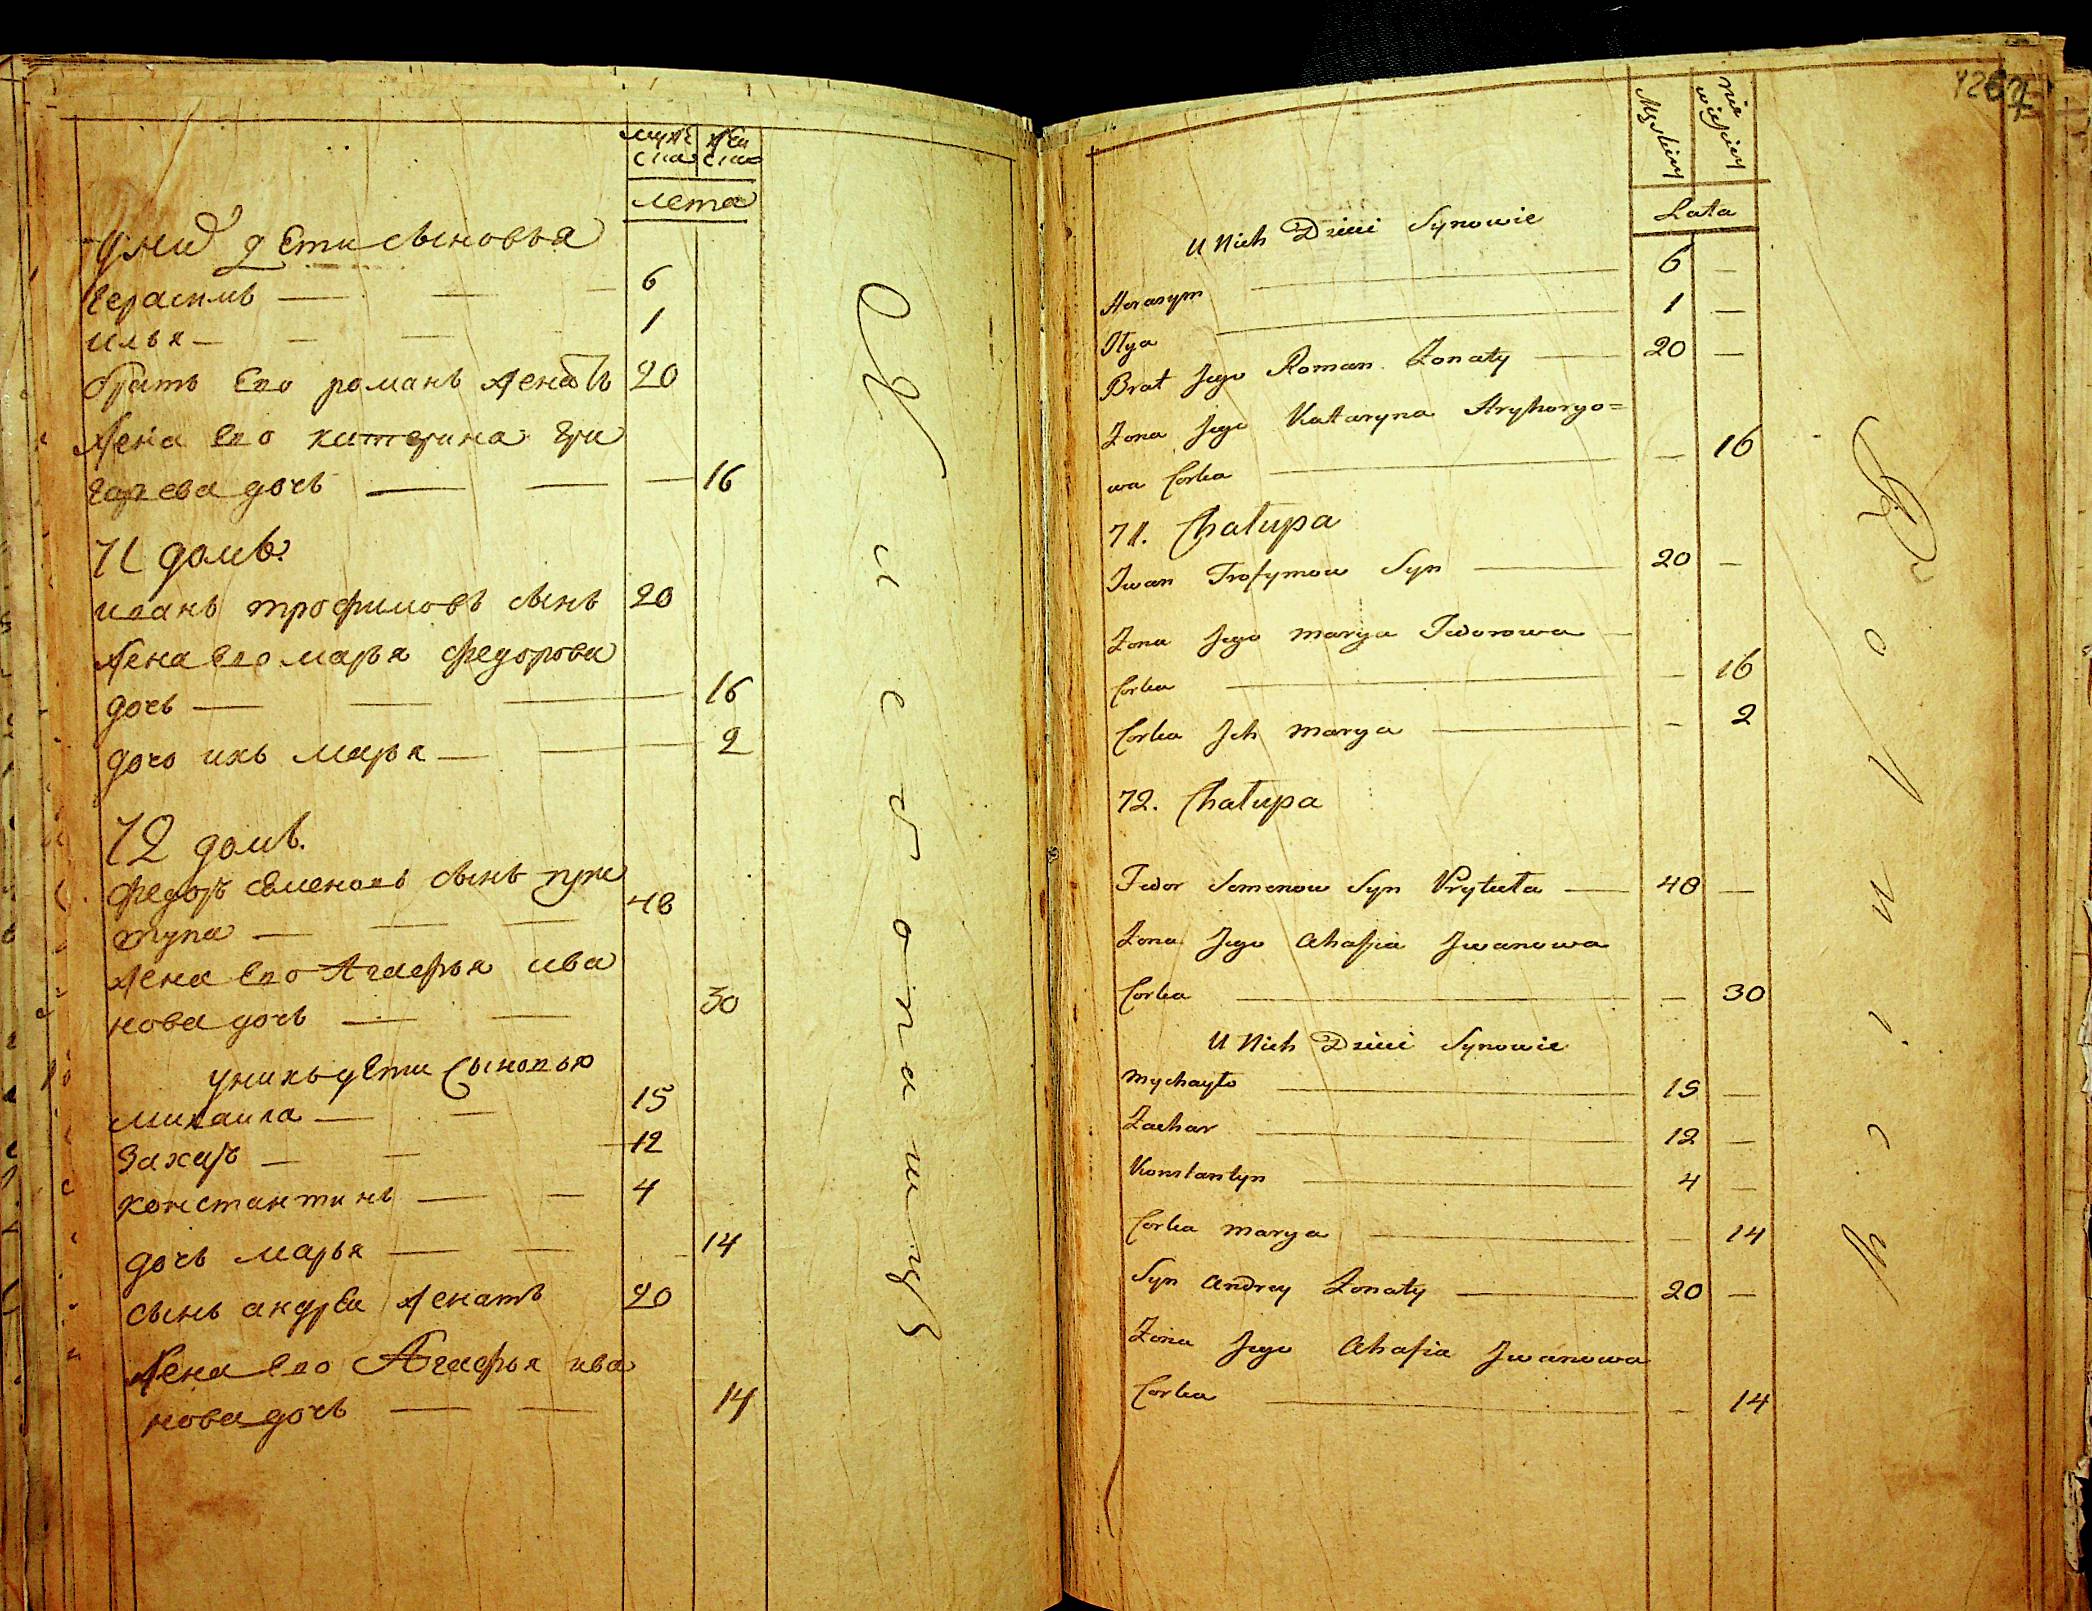 муже
ска
жен
ска
лета
у них дети сыновья
герасимъ — 6
илья — 1
братъ его романъ женатъ 20
жена его катерина гри
горева дочь — 16
71 домъ.
иванъ трофимовъ сынъ 20
жена его марья федорова
дочь — 16
дочь ихъ марья — 2
72 домъ.
федоръ семеновъ сынъ при
тула — 48
жена его Агафья ива
нова дочь — 30
у нихъ дети сыновья
михаила — 15
захаръ — 12
константинъ — 4
дочь марья — 14
сынъ андреи женатъ 20
жена его Агафья ива
нова дочь — 14
1267
Męskiey
nie
wieściey
Lata
U Nich Dzieci Synowie
Horasym — 6 —
Ilya — 1 —
Brat Jego Roman Zonaty — 20 —
Zona Jego Kataryna Hryhoryo=
wa Corka — — 16
71. Chałupa
Iwan Trofymow Syn — 20 —
Zona Jego Marya Fedorowa —
Corka — — 16
Corka Ich Marya — — 2
72. Chałupa
Fedor Semenow Syn Prytuła — 48 —
Zona Jego Ahafia Iwanowa
Corka — — 30
U Nich Dzieci Synowie
Mychayło — 15 —
Zachar — 12 —
Konstantyn — 4 —
Corka Marya — — 14
Syn Andrey Zonaty — 20 —
Zona Jego Ahafia Iwanowa
Corka — — 14